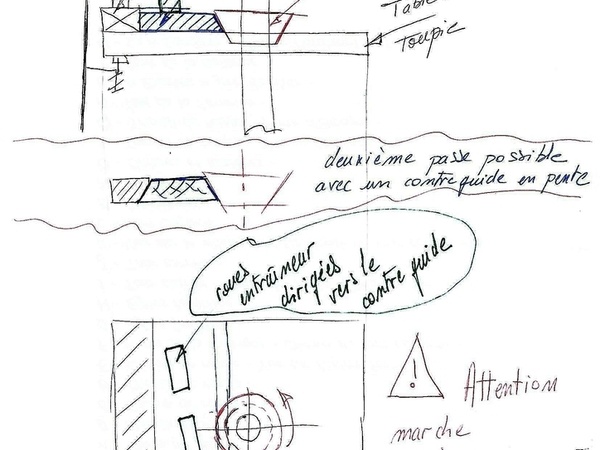 Table
Toupie
deuxième passe possible
avec un contre guide en pente
roues
entraîneur
dirigées
vers le
contre guide
!
Attention
marche